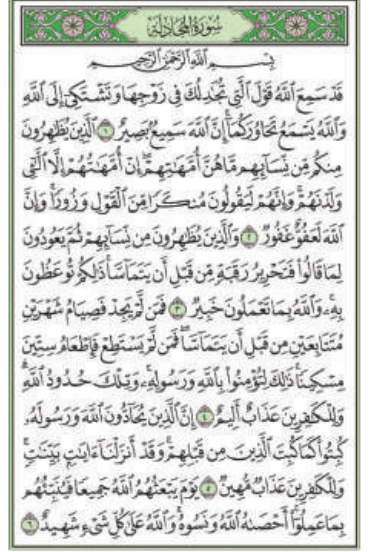 سُورَةُ المُجَادلَةِ
بِسْمِ ٱللَّهِ ٱلرَّحْمَٰنِ ٱلرَّحِيمِ
قَدْ سَمِعَ ٱللَّهُ قَوْلَ ٱلَّتِي تُجَٰدِلُكَ فِي زَوْجِهَا وَتَشْتَكِيٓ إِلَى ٱللَّهِ
وَٱللَّهُ يَسْمَعُ تَحَاوُرَكُمَآۚ إِنَّ ٱللَّهَ سَمِيعٌۢ بَصِيرٌ ١ ٱلَّذِينَ يُظَٰهِرُونَ
مِنكُم مِّن نِّسَآئِهِم مَّا هُنَّ أُمَّهَٰتِهِمْۖ إِنْ أُمَّهَٰتُهُمْ إِلَّا ٱلَّٰٓـِٔي
وَلَدْنَهُمْۚ وَإِنَّهُمْ لَيَقُولُونَ مُنكَرًا مِّنَ ٱلْقَوْلِ وَزُورًاۚ وَإِنَّ
ٱللَّهَ لَعَفُوٌّ غَفُورٌ ٢ وَٱلَّذِينَ يُظَٰهِرُونَ مِن نِّسَآئِهِمْ ثُمَّ يَعُودُونَ
لِمَا قَالُوا۟ فَتَحْرِيرُ رَقَبَةٍ مِّن قَبْلِ أَن يَتَمَآسَّاۚ ذَٰلِكُمْ تُوعَظُونَ
بِهِۦۚ وَٱللَّهُ بِمَا تَعْمَلُونَ خَبِيرٌ ٣ فَمَن لَّمْ يَجِدْ فَصِيَامُ شَهْرَيْنِ
مُتَتَابِعَيْنِ مِن قَبْلِ أَن يَتَمَآسَّاۖ فَمَن لَّمْ يَسْتَطِعْ فَإِطْعَامُ سِتِّينَ
مِسْكِينًاۚ ذَٰلِكَ لِتُؤْمِنُوا۟ بِٱللَّهِ وَرَسُولِهِۦۚ وَتِلْكَ حُدُودُ ٱللَّهِۗ
وَلِلْكَٰفِرِينَ عَذَابٌ أَلِيمٌ ٤ إِنَّ ٱلَّذِينَ يُحَآدُّونَ ٱللَّهَ وَرَسُولَهُۥ
كُبِتُوا۟ كَمَا كُبِتَ ٱلَّذِينَ مِن قَبْلِهِمْۚ وَقَدْ أَنزَلْنَآ ءَايَٰتٍۭ بَيِّنَٰتٍۚ
وَلِلْكَٰفِرِينَ عَذَابٌ مُّهِينٌ ٥ يَوْمَ يَبْعَثُهُمُ ٱللَّهُ جَمِيعًا فَيُنَبِّئُهُم
بِمَا عَمِلُوٓا۟ۚ أَحْصَىٰهُ ٱللَّهُ وَنَسُوهُۚ وَٱللَّهُ عَلَىٰ كُلِّ شَيْءٍ شَهِيدٌ ٦